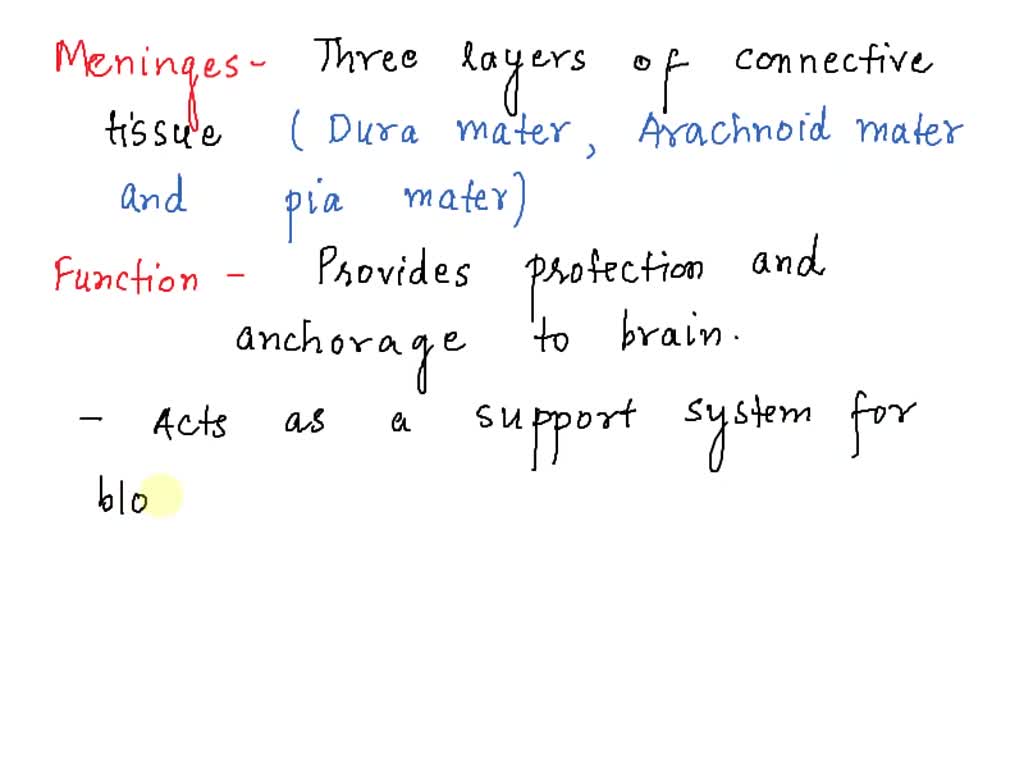 Meninges - Three layers of connective
tissue ( Dura mater, Arachnoid mater
and pia mater)
Function - Provides protection and
anchorage to brain.
- Acts as a support system for
blo